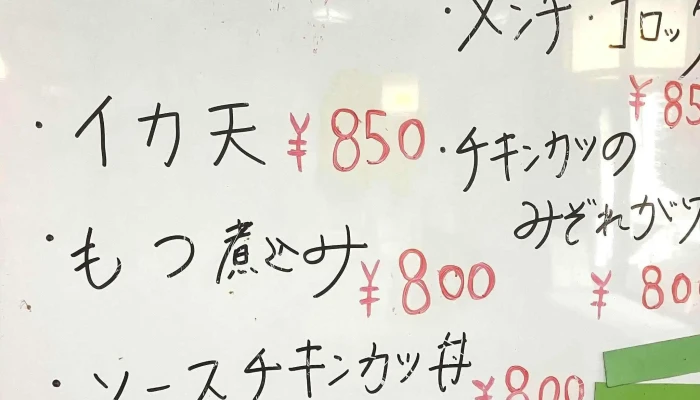 ・イカ天 ¥850
・もつ煮込み ¥800
・ソースチキンカツ丼 ¥800
・メンチ・コロッ
¥85
・チキンカツの
みぞれがけ
¥800